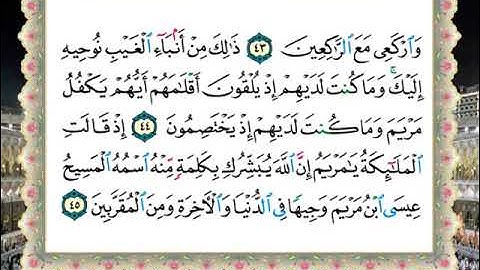 وَٱرْكَعِى مَعَ ٱلرَّٰكِعِينَ ٤٣ ذَٰلِكَ مِنْ أَنۢبَآءِ ٱلْغَيْبِ نُوحِيهِ
إِلَيْكَ ۚ وَمَا كُنتَ لَدَيْهِمْ إِذْ يُلْقُونَ أَقْلَٰمَهُمْ أَيُّهُمْ يَكْفُلُ
مَرْيَمَ وَمَا كُنتَ لَدَيْهِمْ إِذْ يَخْتَصِمُونَ ٤٤ إِذْ قَالَتِ
ٱلْمَلَٰٓئِكَةُ يَٰمَرْيَمُ إِنَّ ٱللَّهَ يُبَشِّرُكِ بِكَلِمَةٍ مِّنْهُ ٱسْمُهُ ٱلْمَسِيحُ
عِيسَى ٱبْنُ مَرْيَمَ وَجِيهًا فِى ٱلدُّنْيَا وَٱلْءَاخِرَةِ وَمِنَ ٱلْمُقَرَّبِينَ ٤٥